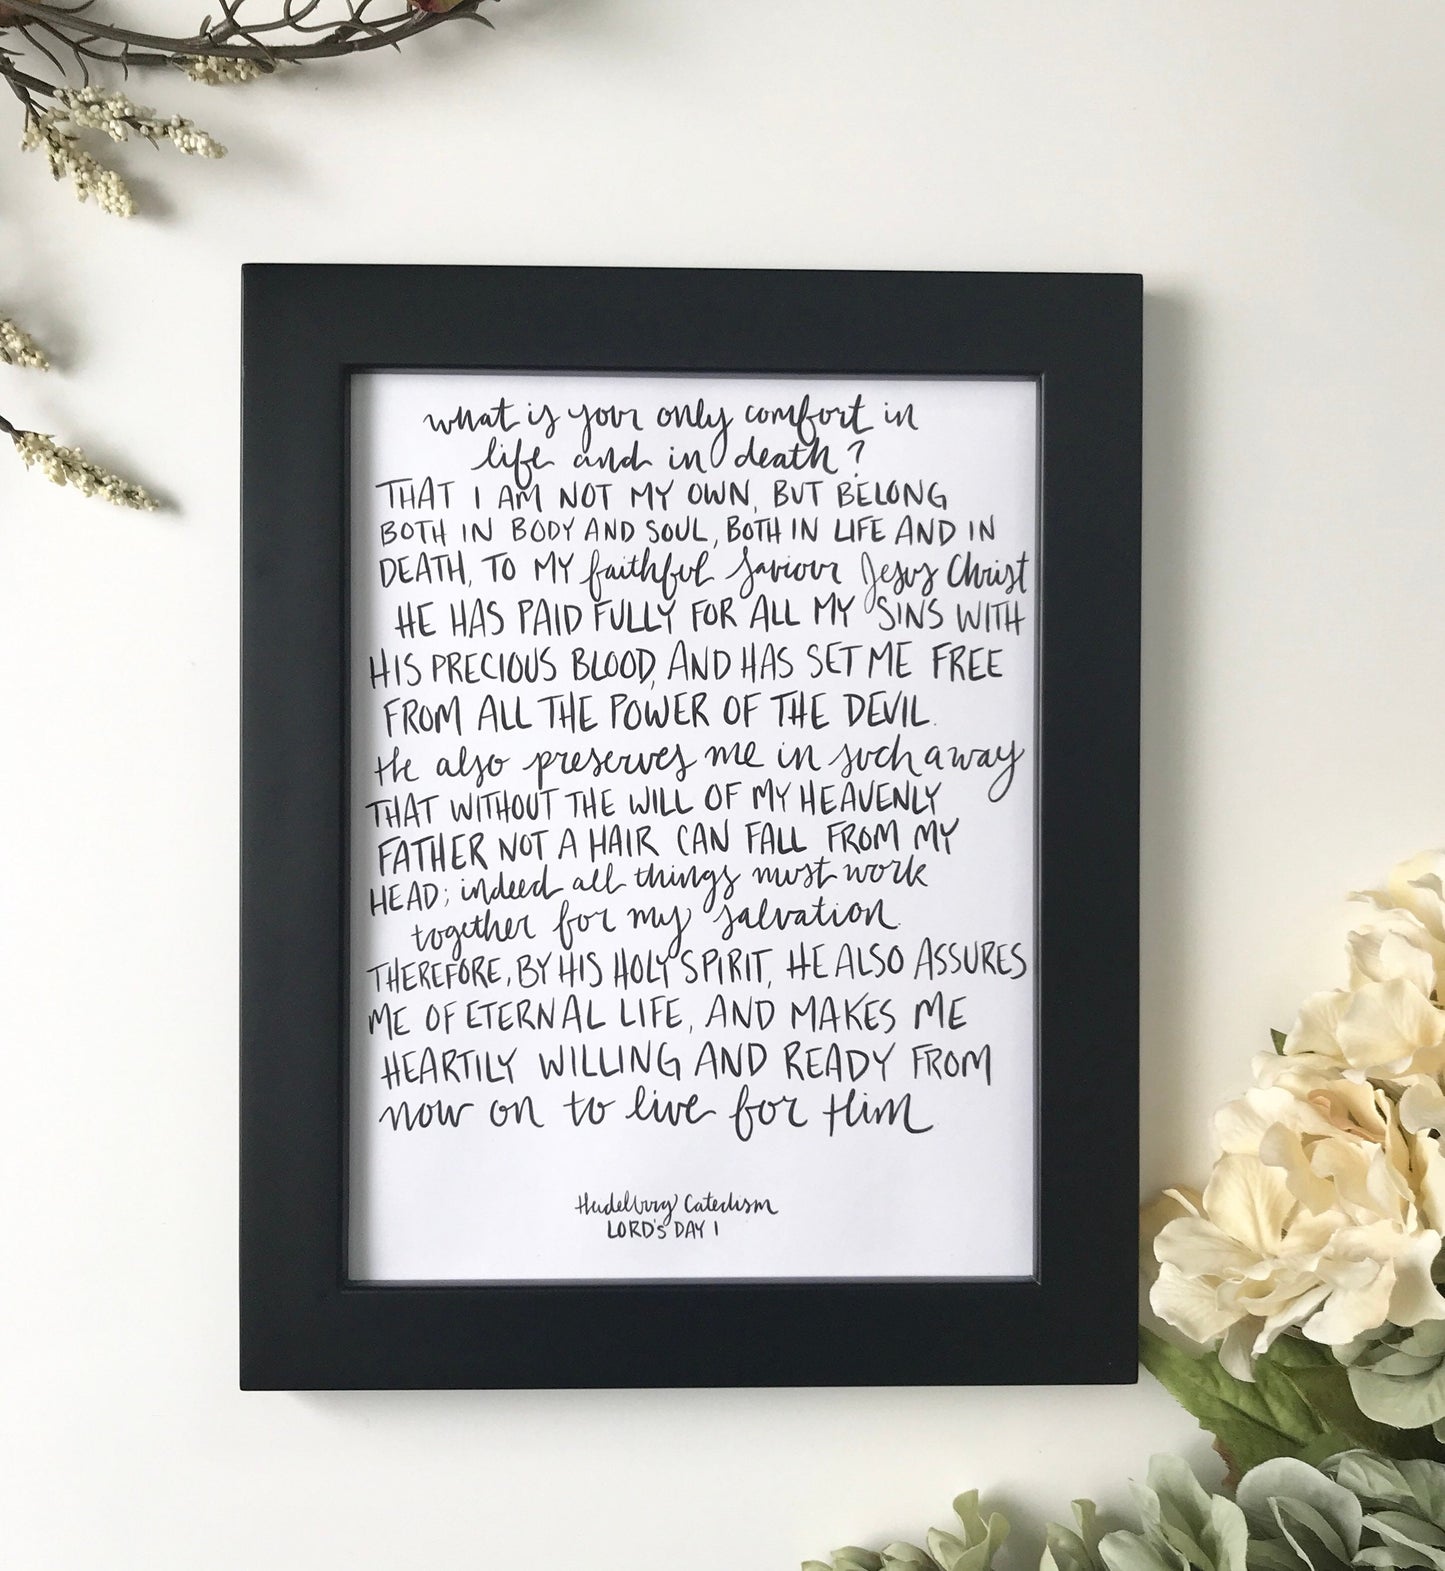 what is your only comfort in
life and in death?
THAT I AM NOT MY OWN, BUT BELONG
BOTH IN BODY AND SOUL, BOTH IN LIFE AND IN
DEATH, TO MY faithful Saviour Jesus Christ
HE HAS PAID FULLY FOR ALL MY SINS WITH
HIS PRECIOUS BLOOD, AND HAS SET ME FREE
FROM ALL THE POWER OF THE DEVIL.
He also preserves me in such a way
THAT WITHOUT THE WILL OF MY HEAVENLY
FATHER NOT A HAIR CAN FALL FROM MY
HEAD; indeed all things must work
together for my salvation.
THEREFORE, BY HIS HOLY SPIRIT, HE ALSO ASSURES
ME OF ETERNAL LIFE, AND MAKES ME
HEARTILY WILLING AND READY FROM
now on to live for Him
Heidelburg Catechism
LORD'S DAY 1